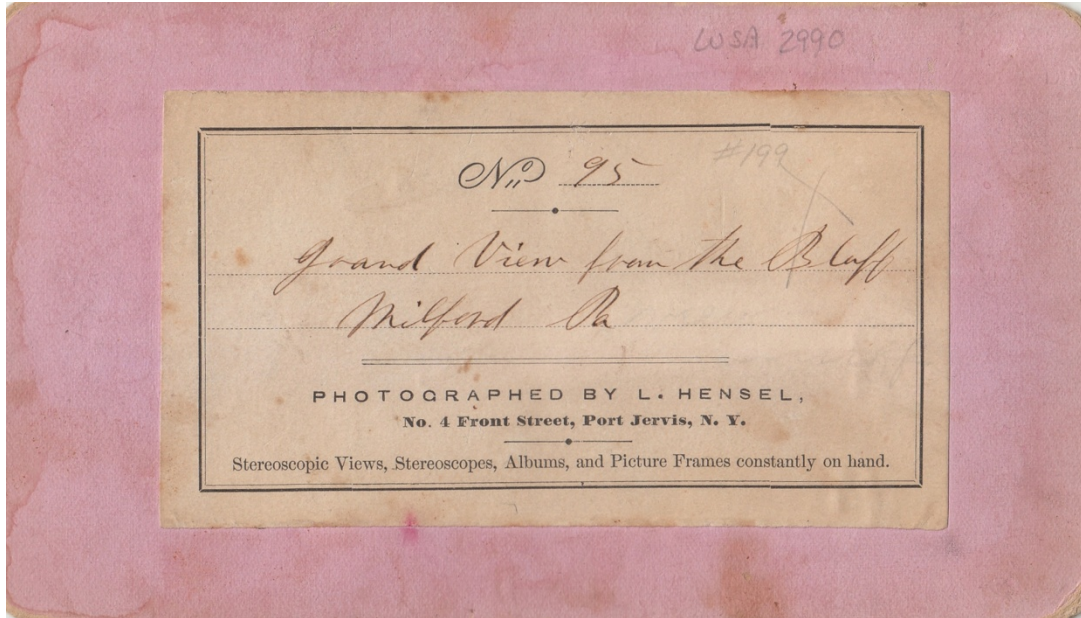 WSA 2990
#199
No. 95
Grand View from the Bluff
Milford Pa
PHOTOGRAPHED BY L. HENSEL,
No. 4 Front Street, Port Jervis, N. Y.
Stereoscopic Views, Stereoscopes, Albums, and Picture Frames constantly on hand.